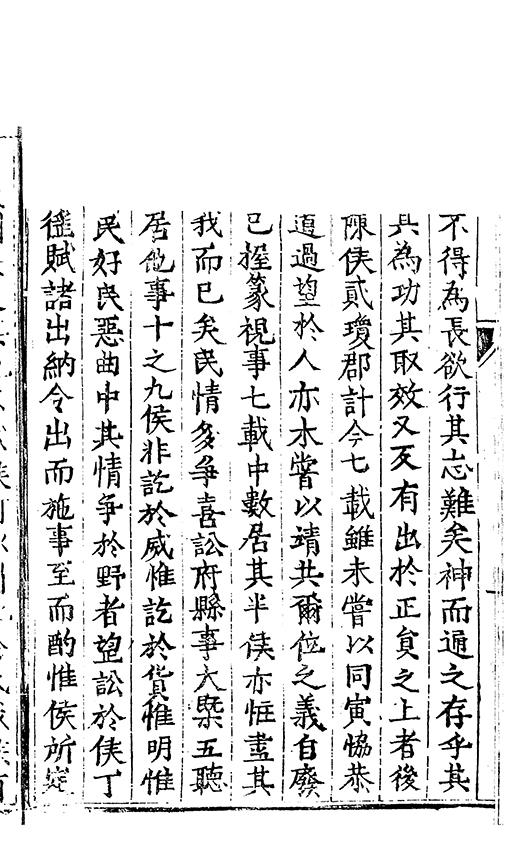 不得為長欲行其志難矣神而通之存乎其
其為功其取效又反有出於正貟之上者後
陳侯貳瓊郡計今七載雖未嘗以同寅恊恭
道過望於人亦未嘗以靖共爾位之義自廢
已握篆視事七載中數居其半侯亦恇盡其
我而已矣民情多爭喜訟府縣事大槩五聽
居他事十之九侯非訖於威惟訖於貨惟明惟
民好民惡曲中其情爭於野者望訟於侯丁
徭賦諸出納令出而施事至而酌惟侯所定